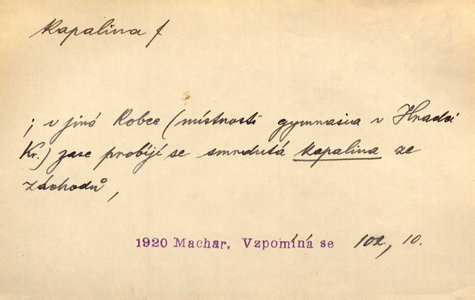 kapalina f
; v jiné kobce (místnosti gymnasia v Hradci
Kr.) zase probíjí se smrdutá kapalina ze
záchodů,
1920 Machar, Vzpomíná se 102, 10.